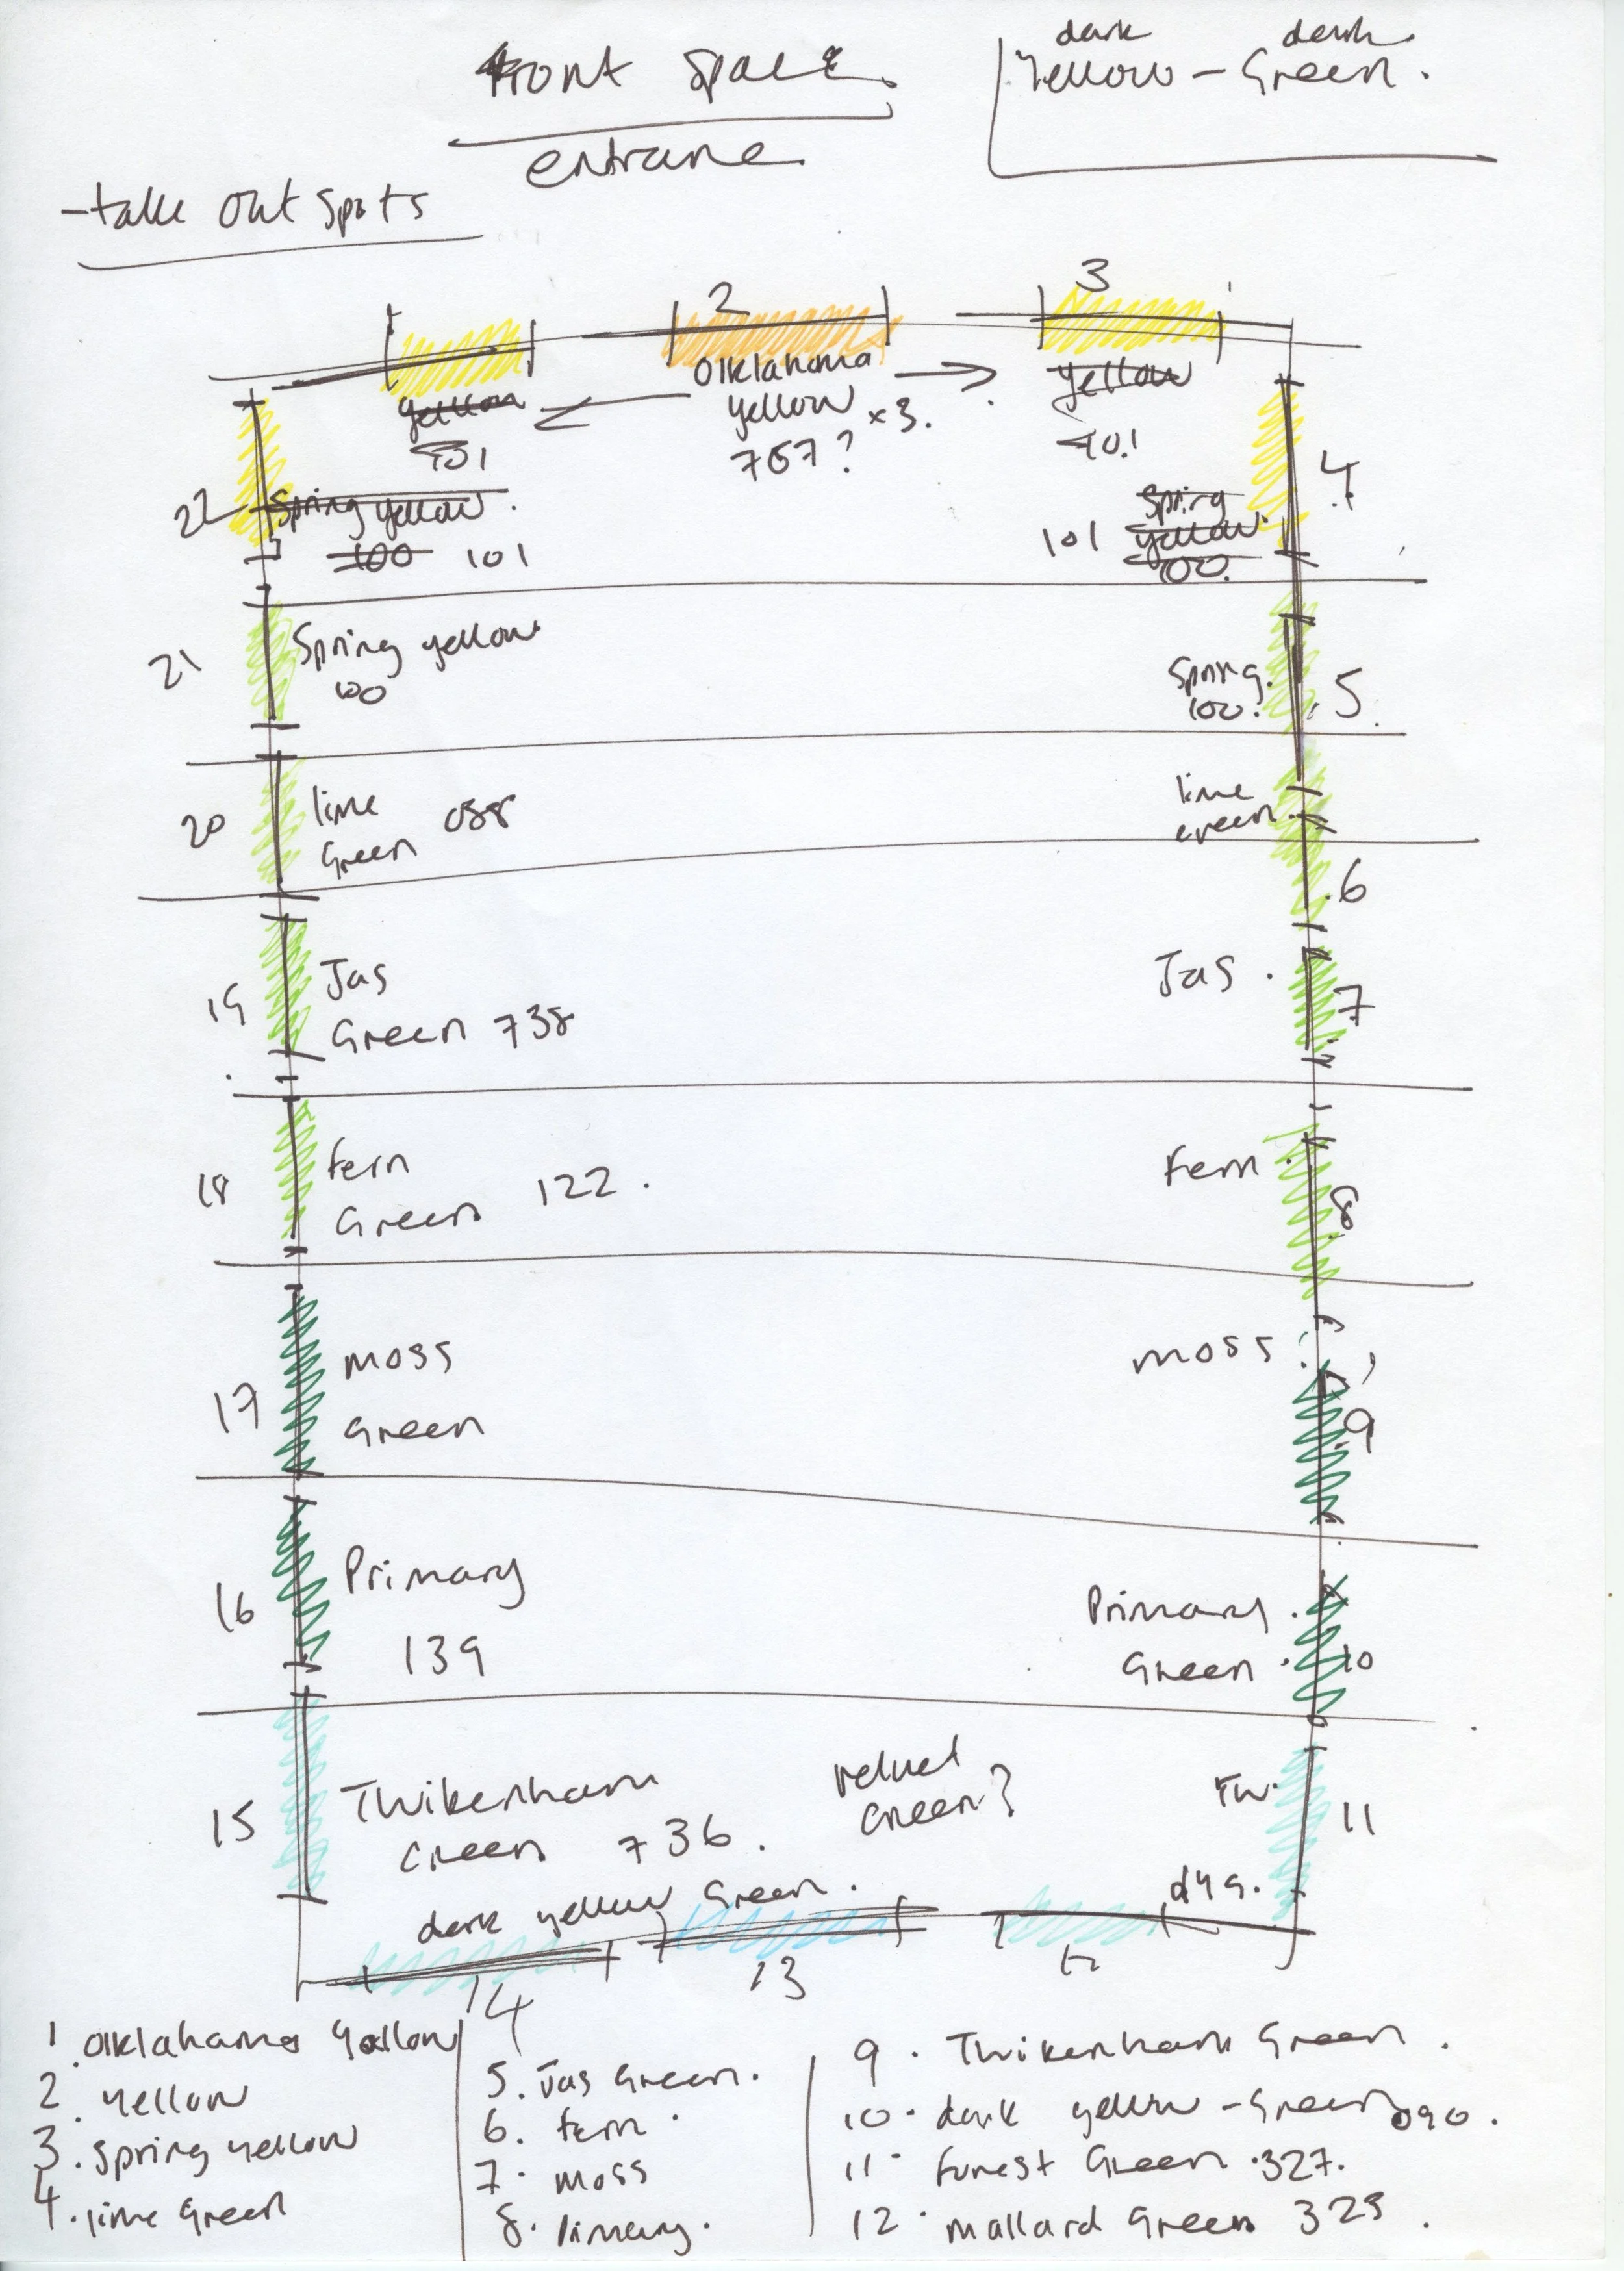 front space
entrane
dark dark
Yellow – Green.
– take out spots
2
3
yellow
101
Oiklahoma
yellow x3.
767?
yellow
101
22
Spring yellow.
100 101
101 Spring
yellow
100.
4
21
Spring yellow
100
Spring.
100.
5
20
lime
Green 088
lime
Green
6
19
Jas
Green 738
Jas
7
18
fern
Green 122.
Fern
8
17
moss
Green
moss
9
16
Primary
139
Primary
Green
10
15
Twikenham
Green 736.
velvet
Green?
Tw.
11
dark yellow Green.
dyg.
14
13
12
1. Oiklahoma Yellow
2. yellow
3. Spring yellow
4. lime Green
5. Jas Green.
6. fern
7. moss
8. Primary.
9. Twikenham Green.
10. dark yellow – Green 090.
11. Forest Green 327.
12. mallard Green 323.